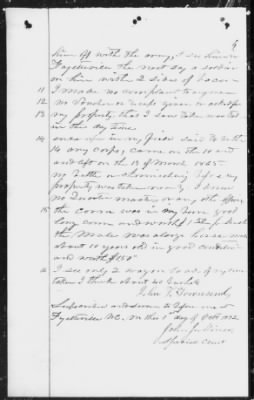 6
him off with the army, I see him in
Fayetteville the next day a soldier
on him with 2 sides of bacon
11 I made no complaint to anyone
12 No Voucher or receipt given or asked for
13 my property that I saw taken was taken
in the day time
14 army corps, came on the 10 and
and left on the 13 of March 1865
no battle or skirmishing before my
property was taken near by I know
no quarter master or any other officers
15 the corn was in my barn good
corn and worth 1
the Mule was a large horse mule
about 10 years old in good condition
and worth $150
I see only 2 wagon loads of my corn
taken I think about 20 bushels
John T. Townsend
Subscribed and sworn to before me at
Fayetteville N.C. on this 1st day of Octr 1872
Special Comr